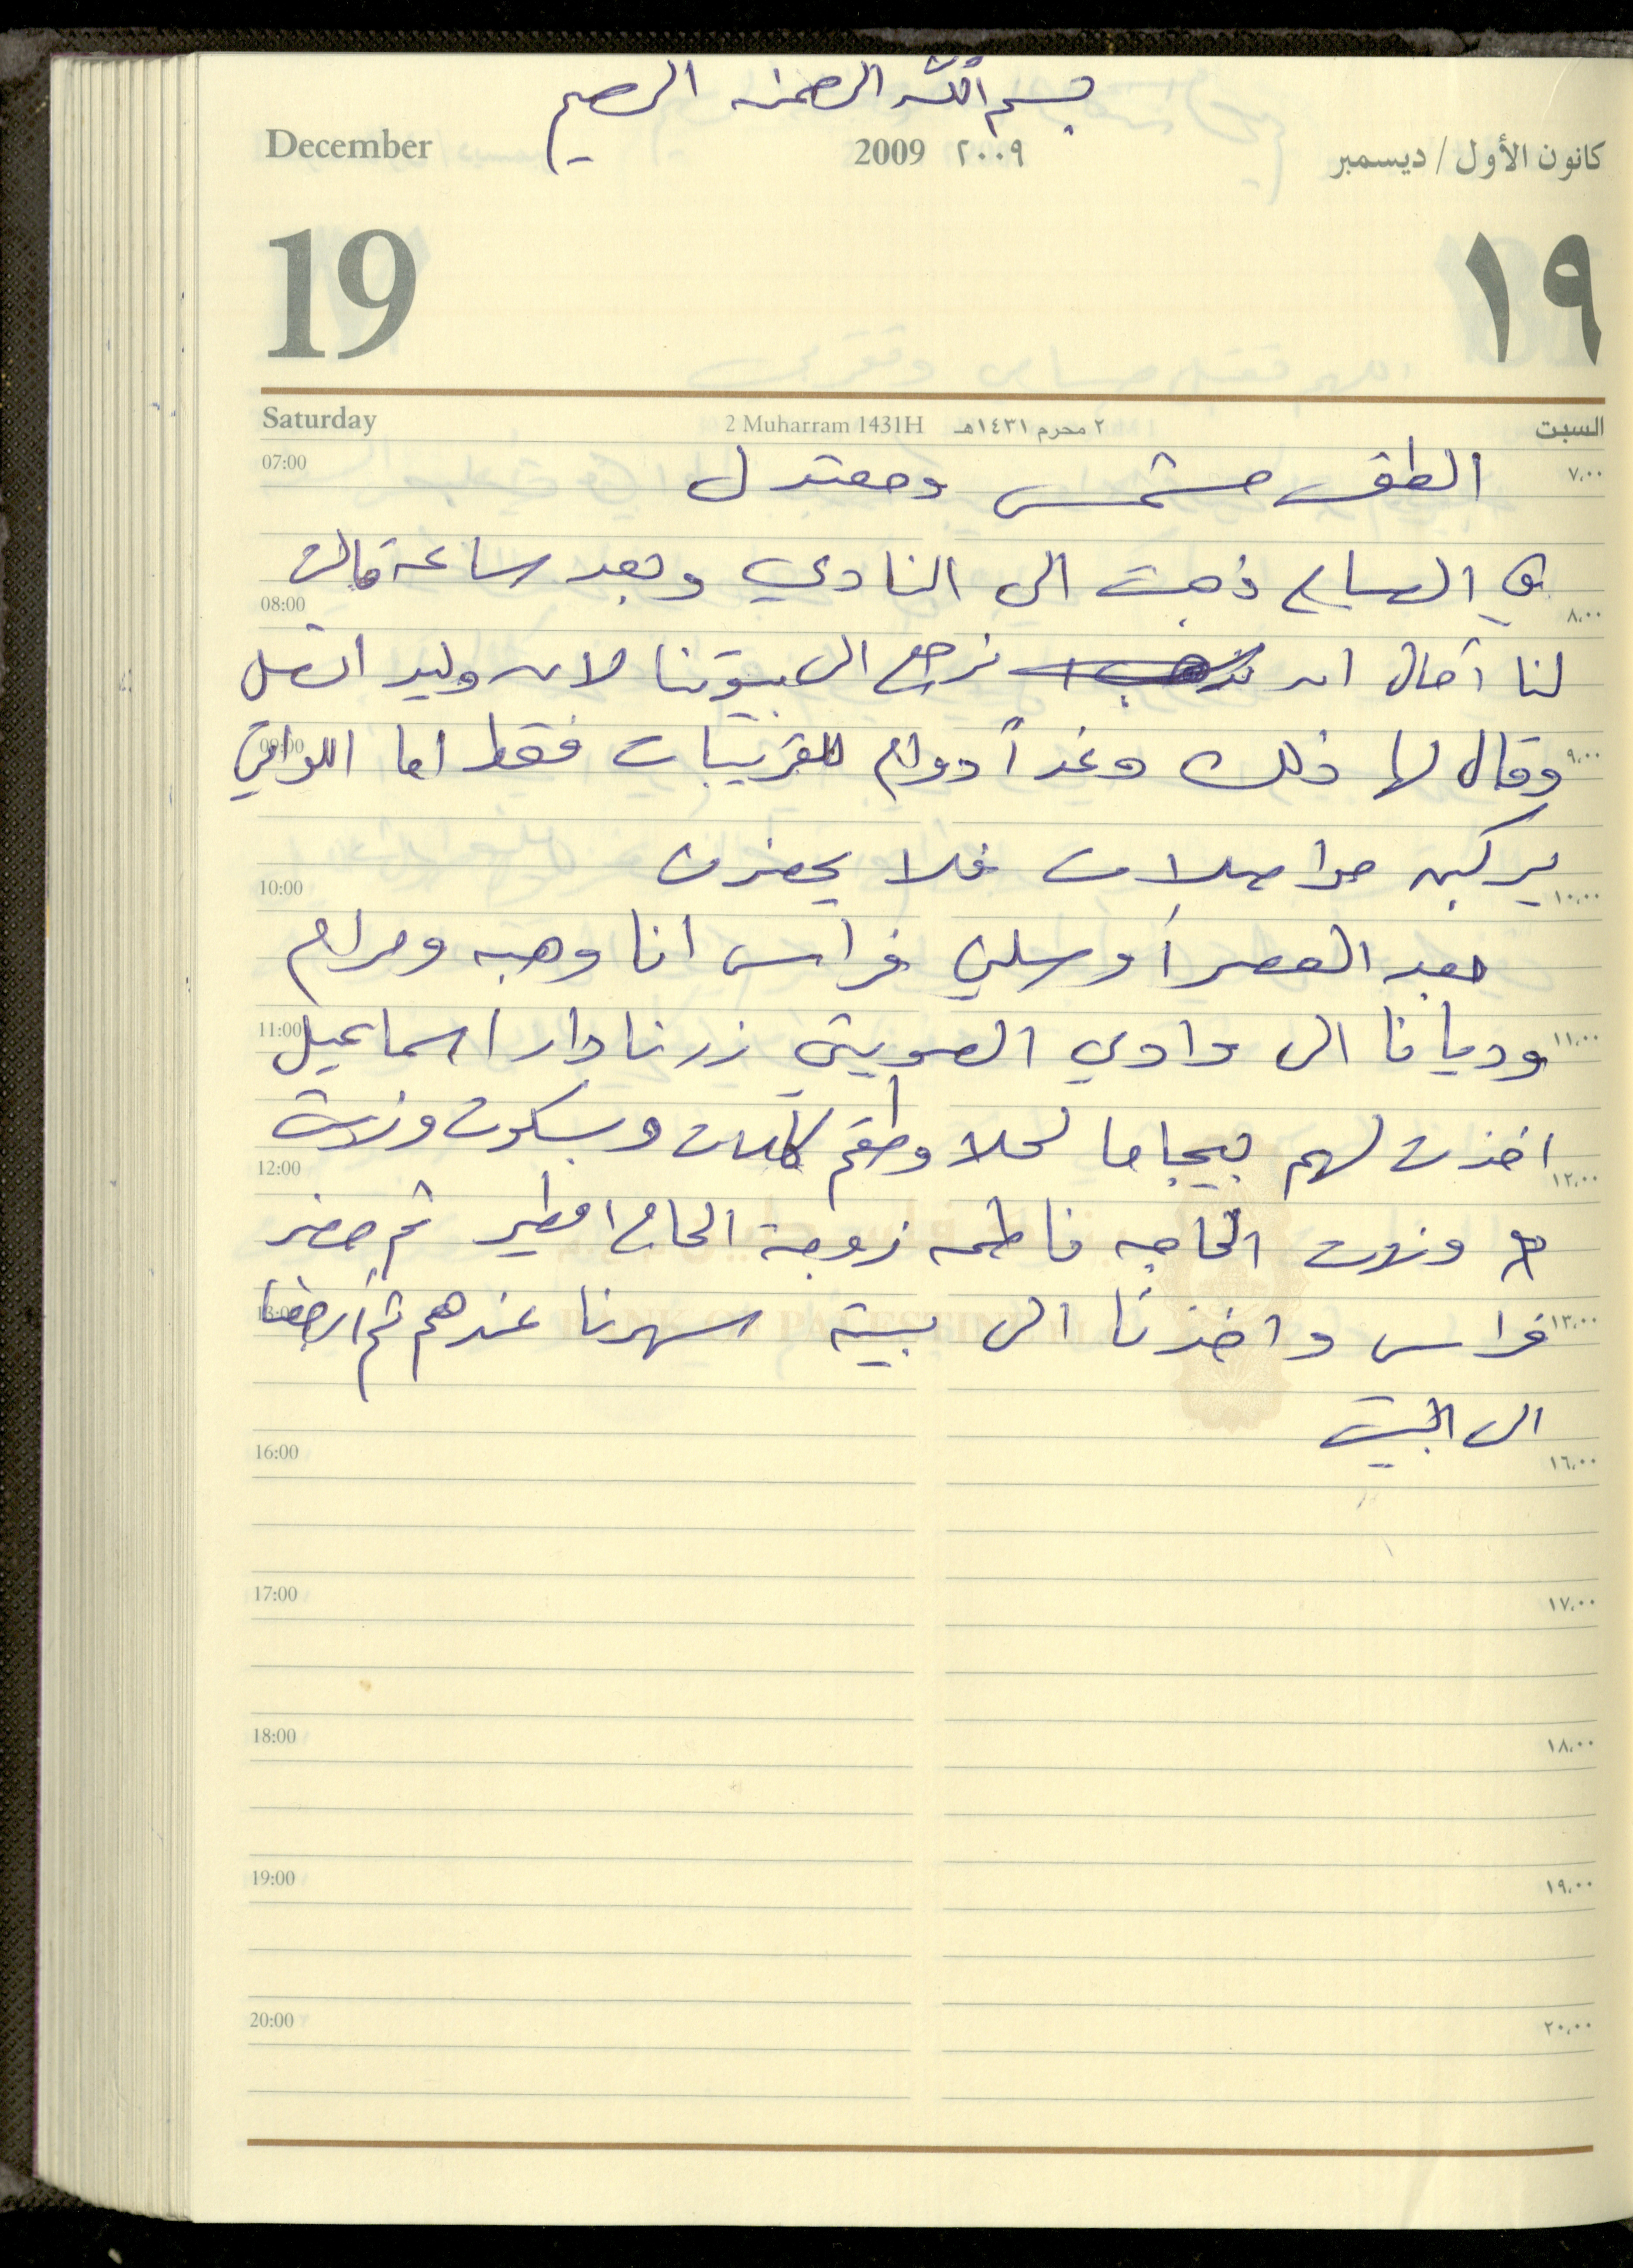 بسم الله الرحمن الرحيم
December 2009 ٢٠٠٩ كانون الأول / ديسمبر
19 ١٩
Saturday 2 Muharram 1431H ٢ محرم ١٤٣١هـ السبت
07:00 الطقس مشمس ومعتدل ٧،٠٠
في الصباح ذهبت الى النادي وبعد ساعة قالت
08:00 ٨،٠٠
لنا آمال ان نرجع الى بيوتنا لان وليد اتصل
09:00 وقال لها ذلك وغداً دوام للقريبات فقط اما اللواتي ٩،٠٠
10:00 يركبن مواصلات فلا يحضرن ١٠،٠٠
بعد العصر أوصلني فراس انا وهبه ومرام
11:00 وديانا الى وادي الصويتي زرنا دار اسماعيل ١١،٠٠
اخذت لهم بيجاما لحلا وطقم كاسات وبسكوت وزرت
12:00 ١٢،٠٠
وزرت الحاجه فاطمه زوجة الحاج امطير ثم حضر
13:00 فراس واخذنا الى بيته سهرنا عندهم ثم ارجعنا ١٣،٠٠
BANK OF PALESTINE
الى البيت
16:00 ١٦،٠٠
17:00 ١٧،٠٠
18:00 ١٨،٠٠
19:00 ١٩،٠٠
20:00 ٢٠،٠٠